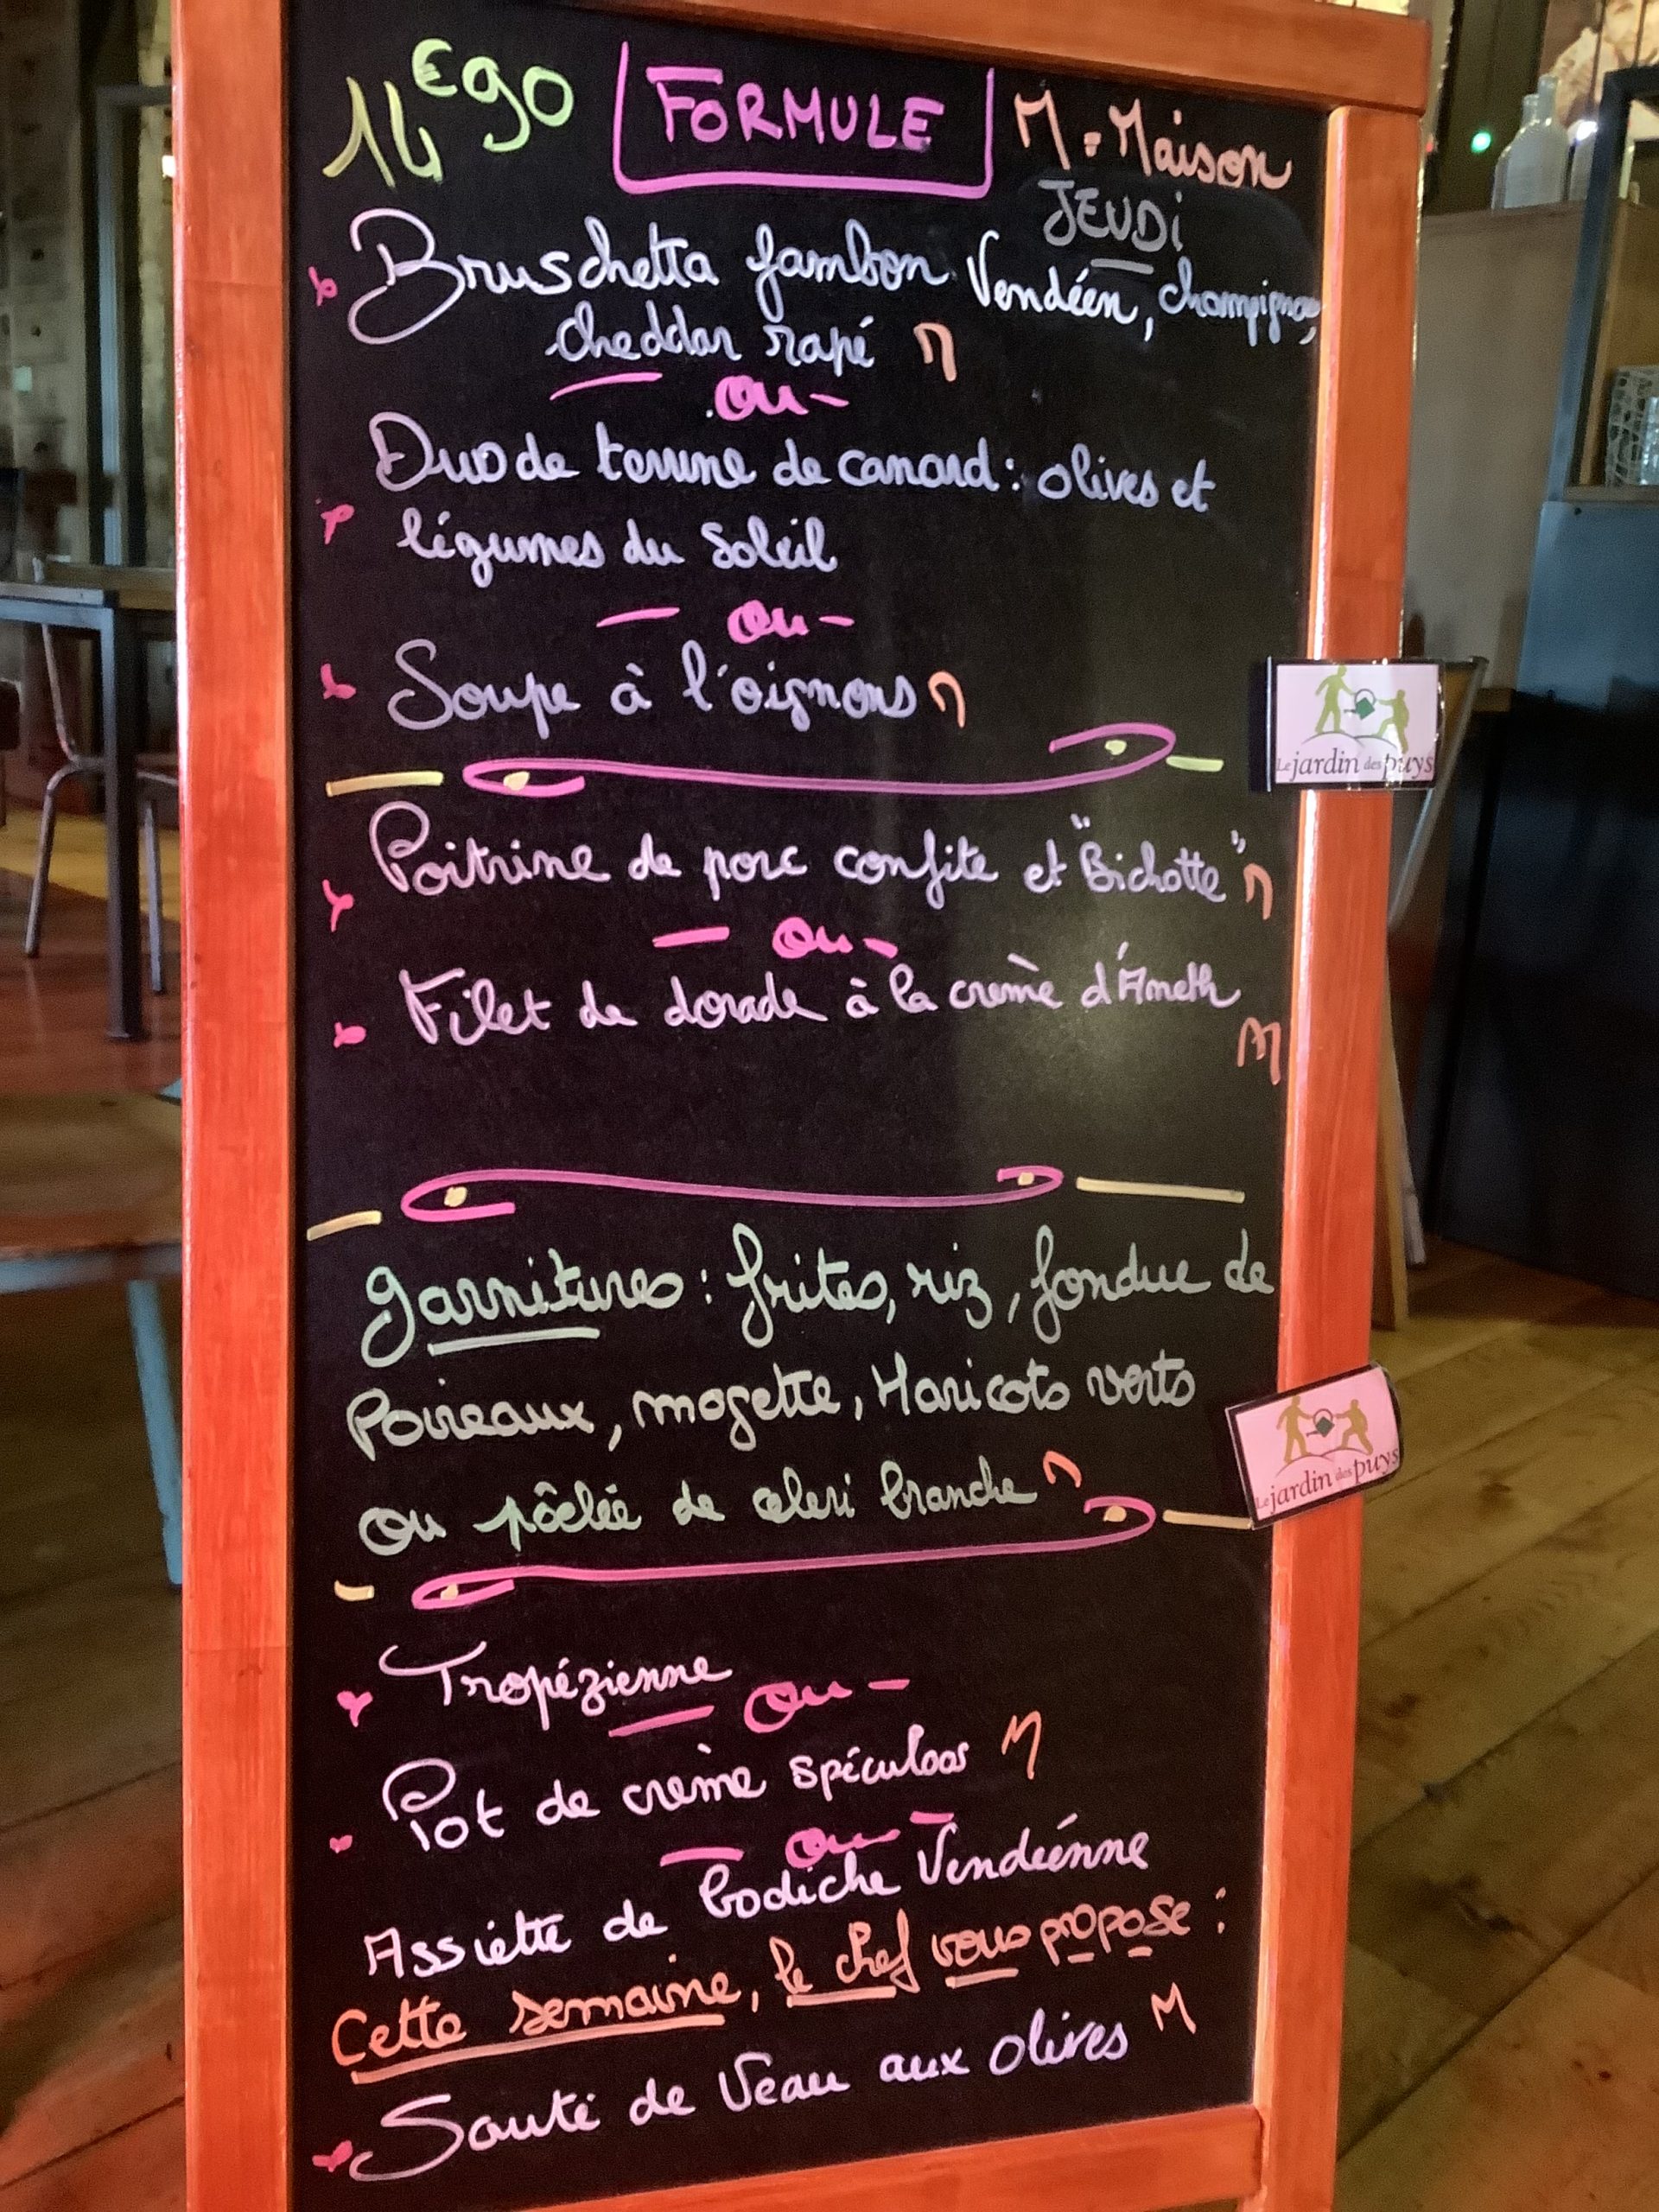 14€90 FORMULE M = Maison
JEUDi
Bruschetta jambon Vendéen, champignons,
cheddar rapé M
- ou -
Duo de terrine de canard : olives et
légumes du Soleil
- ou -
Soupe à l'oignons M
Poitrine de porc confite et "Bichotte" M
- ou -
Filet de dorade à la crème d'Aneth
M
garnitures : frites, riz, fondue de
Poireaux, mogette, Haricots verts
ou pôelée de celeri branche M
Tropézienne
- ou -
Pot de crème spéculoos M
- ou -
Assiette de bodiche Vendéenne
Cette semaine, le chef vous propose :
Sauté de Veau aux olives M
Le jardin des puys
Le jardin des puys